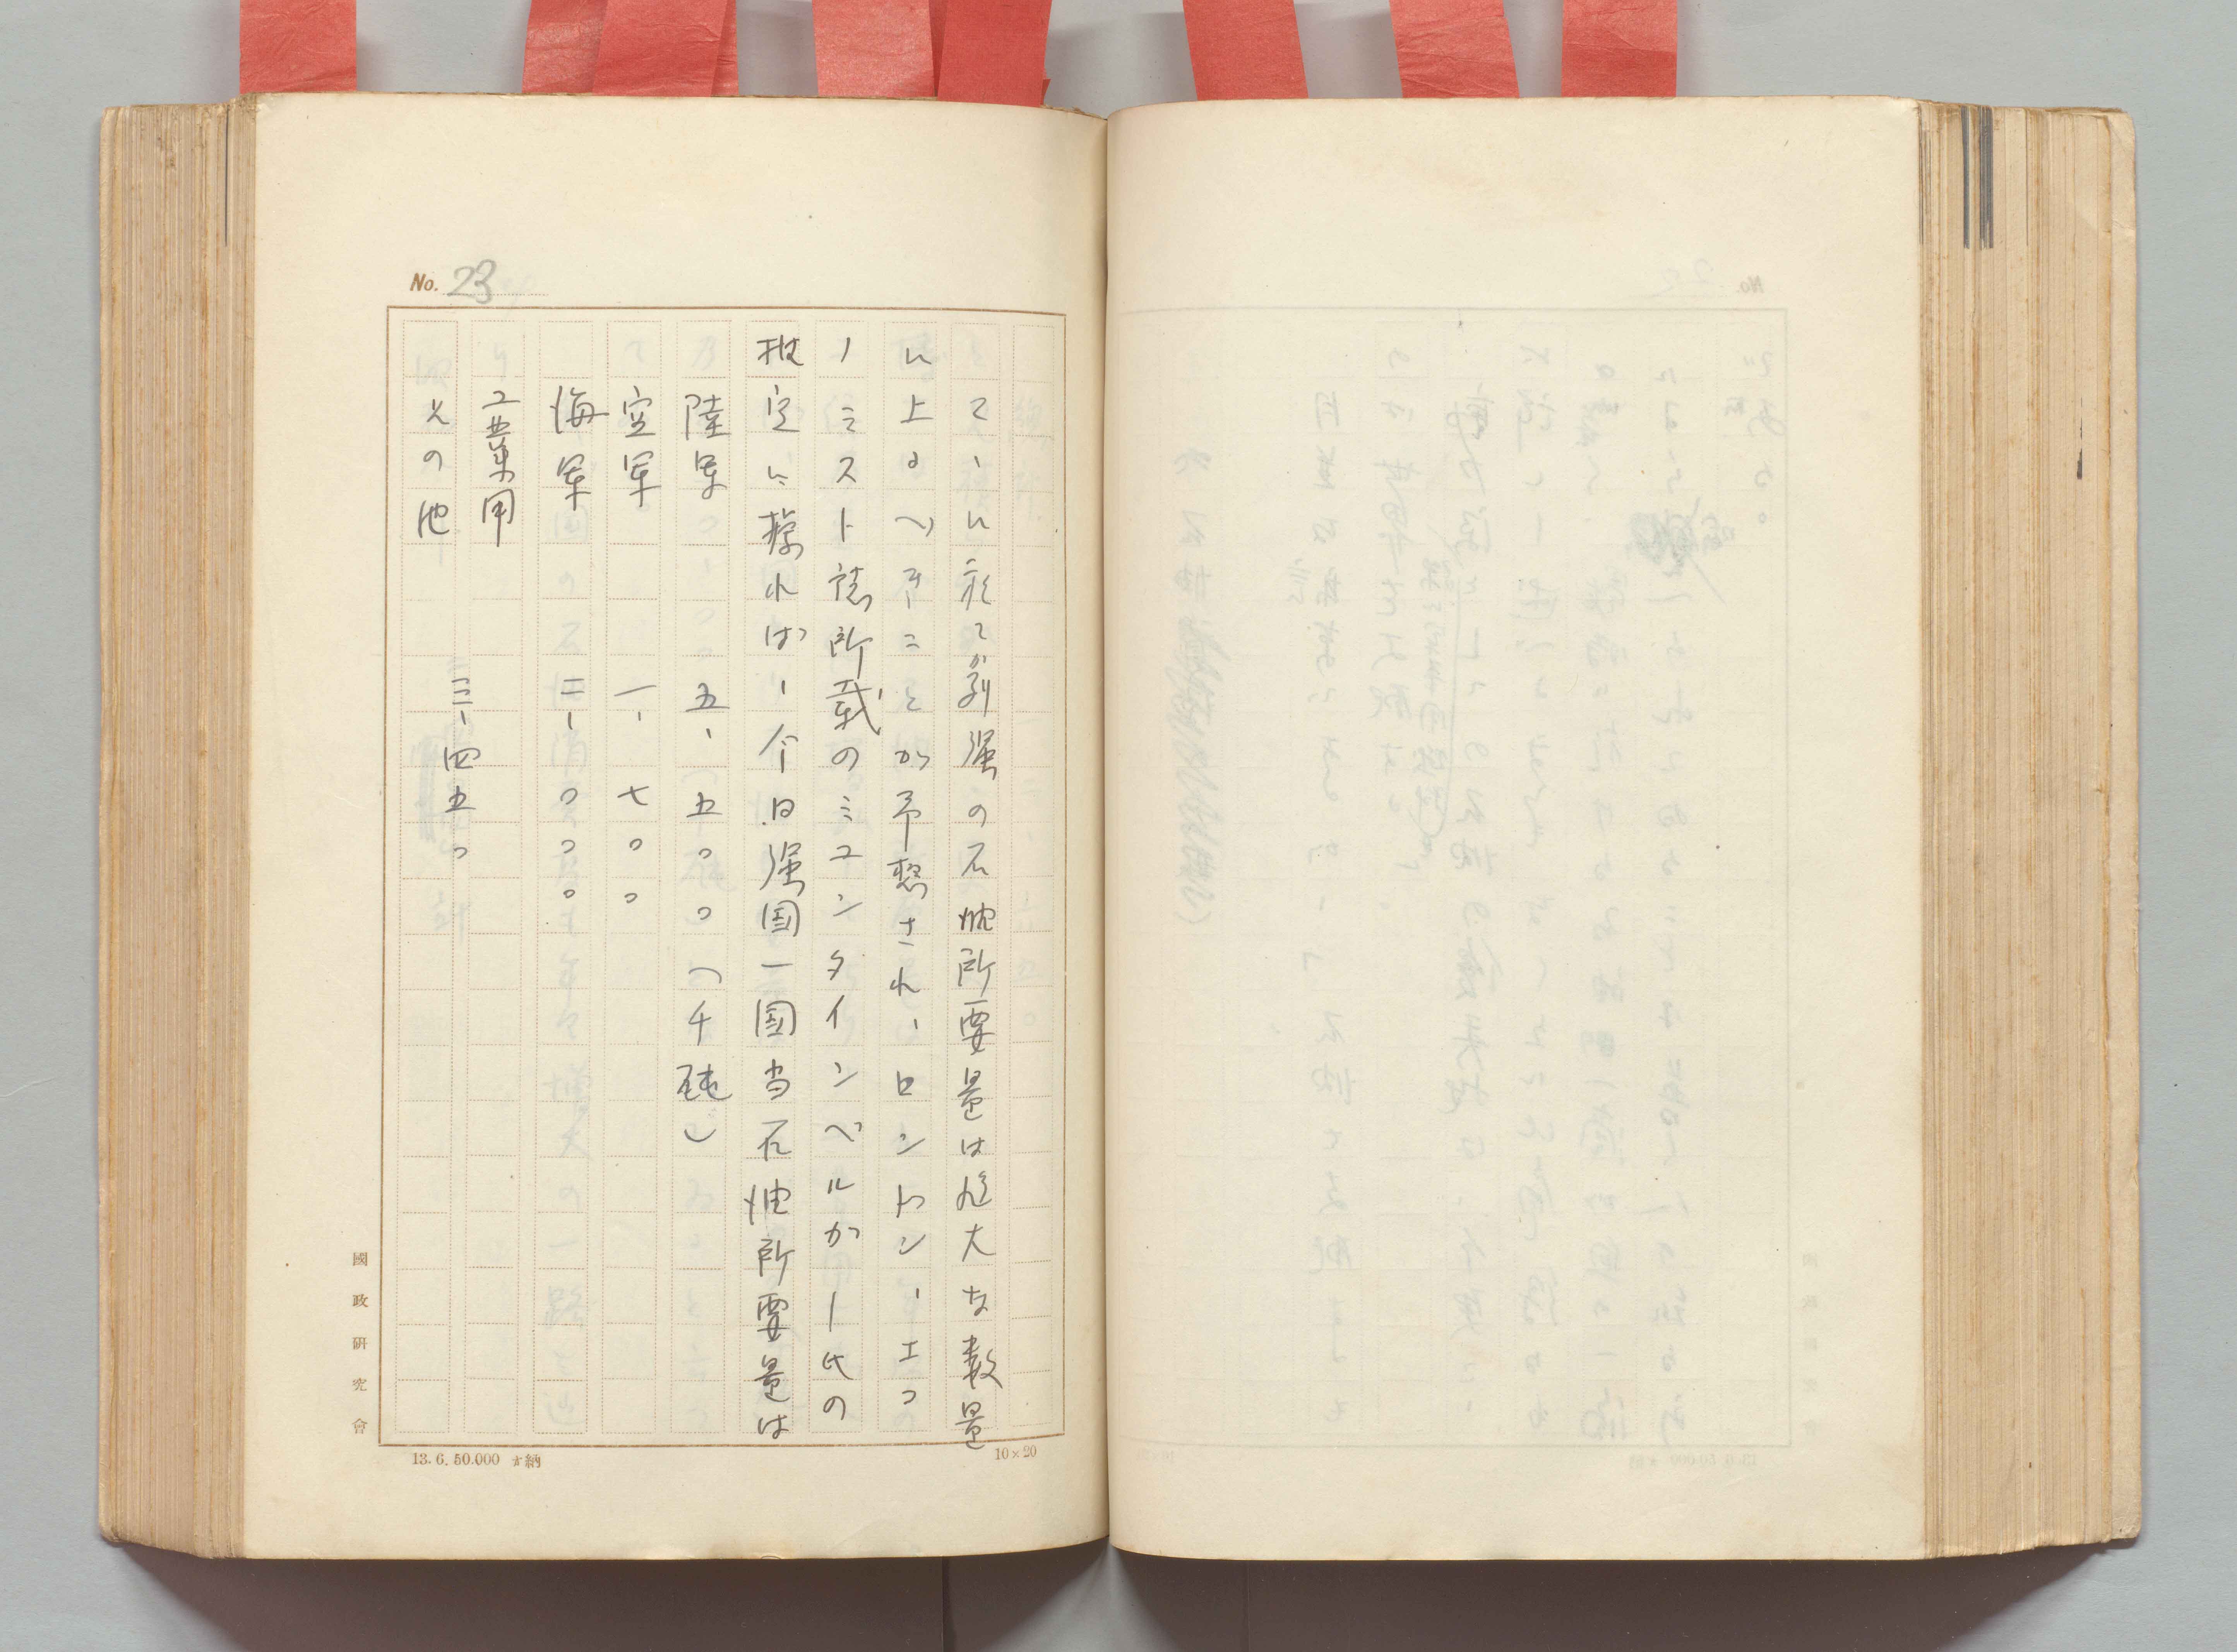 No. 23
て、に於てか列強の石油所要量は尨大な数量
に上るべきことが予想され、ロンドン・エコ
ノミスト誌所載のミュンタインベルガー氏の
推定に據れば、今日強国一国当石油所要量は
陸軍 五、五〇〇(千砘)
空軍 一、七〇〇
海軍 二、〇〇〇
工業用
其の他 三、四五〇
國政研究會
13.6.50.000 納
10×20